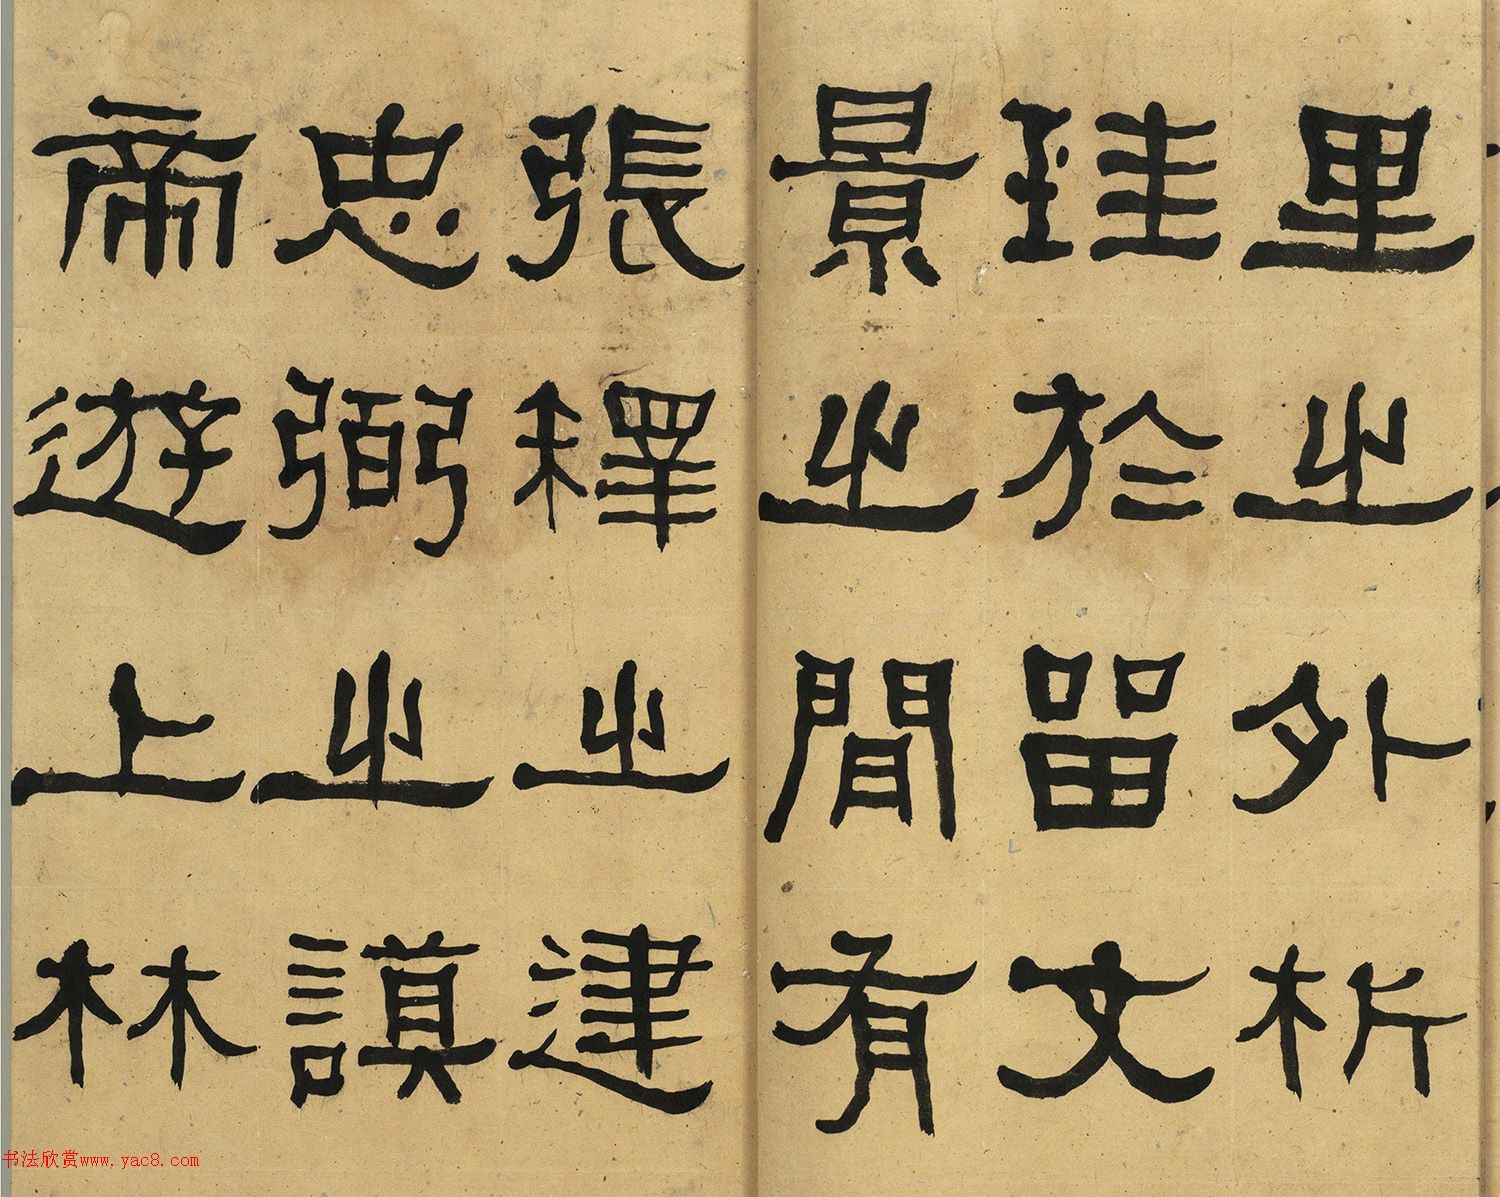 里之外析
珪於留文
景之間有
張釋之建
忠弼之謨
帝遊上林
书法欣赏www.yac8.com